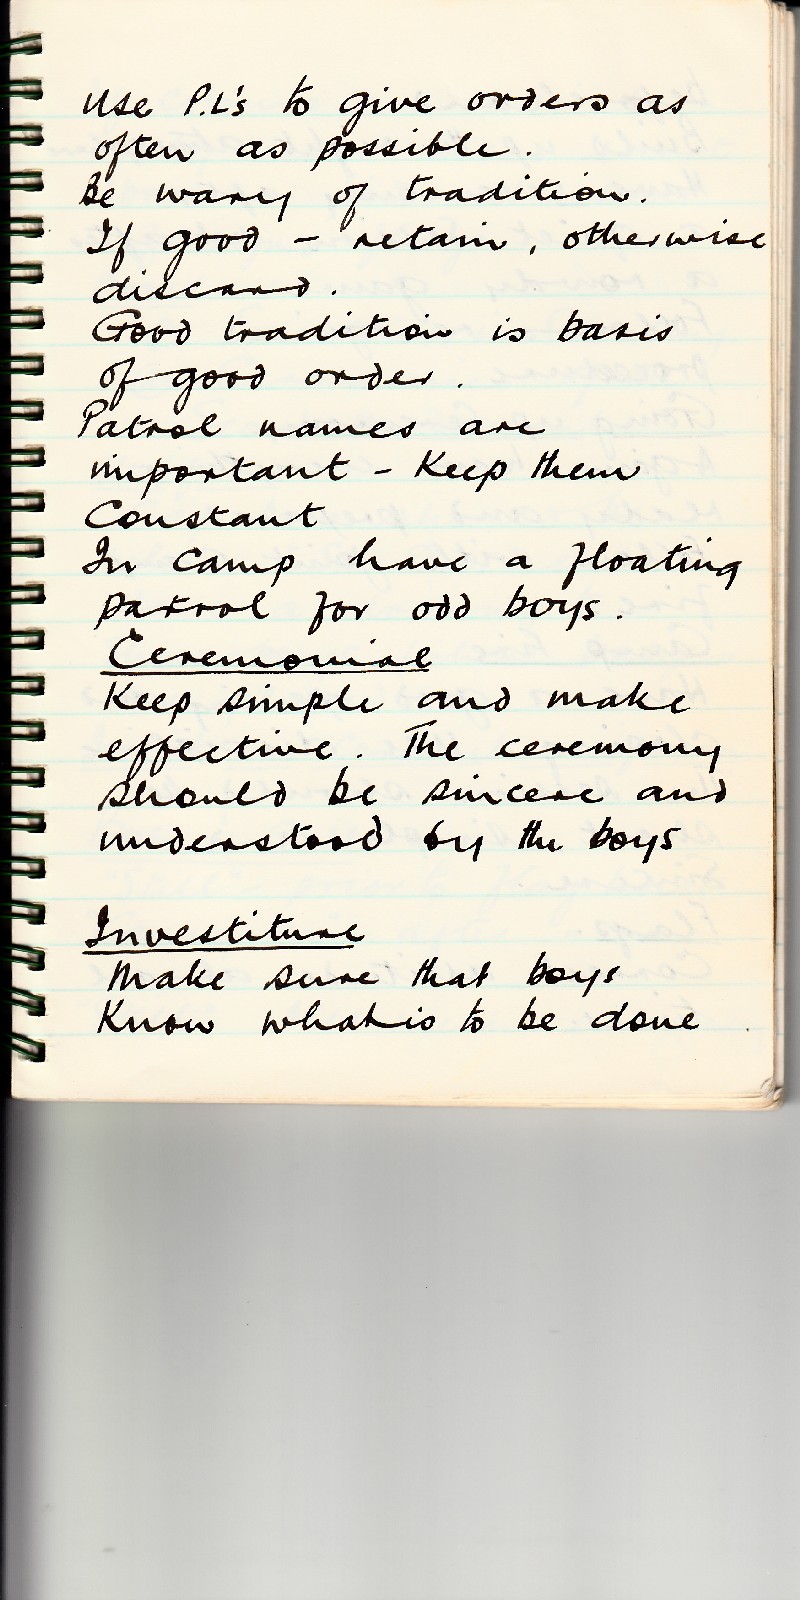 Use P.L's to give orders as
often as possible.
Be wary of tradition.
If good - retain, otherwise
discard.
Good tradition is basis
of good order.
Patrol names are
important - Keep them
Constant
In camp have a floating
patrol for odd boys.
Ceremonial
Keep simple and make
effective. The ceremony
should be sincere and
understood by the boys
Investiture
Make sure that boys
Know what is to be done